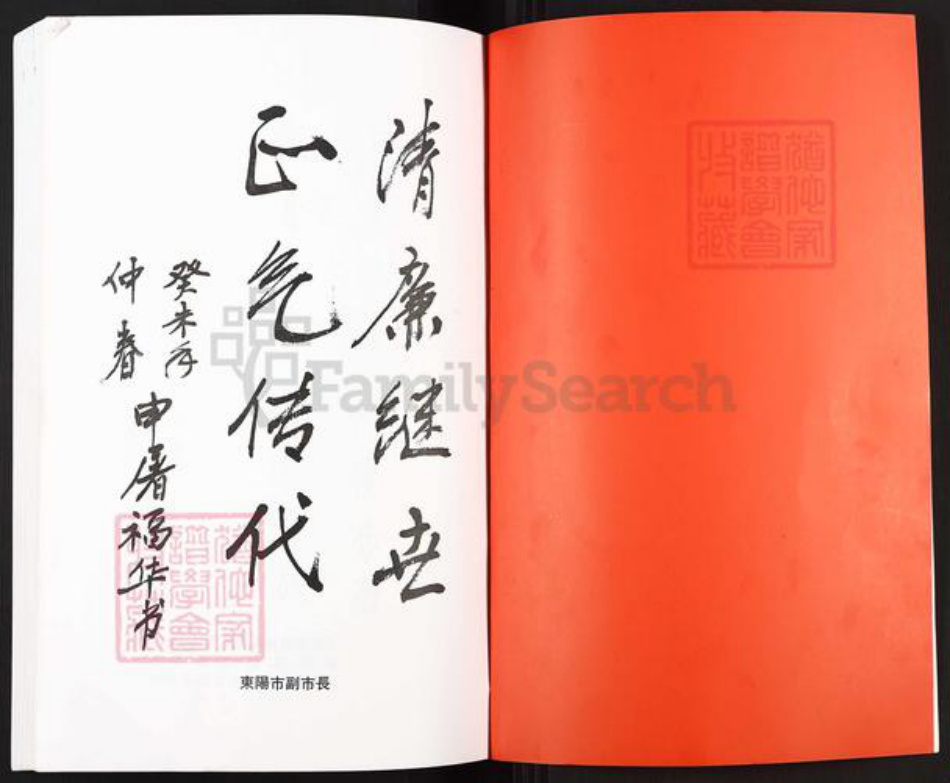 清廉继世
正气传代
癸未年
仲春
申屠福华书
東陽市副市長
猶他家
譜學會
收藏
猶他家
譜學會
收藏
FamilySearch